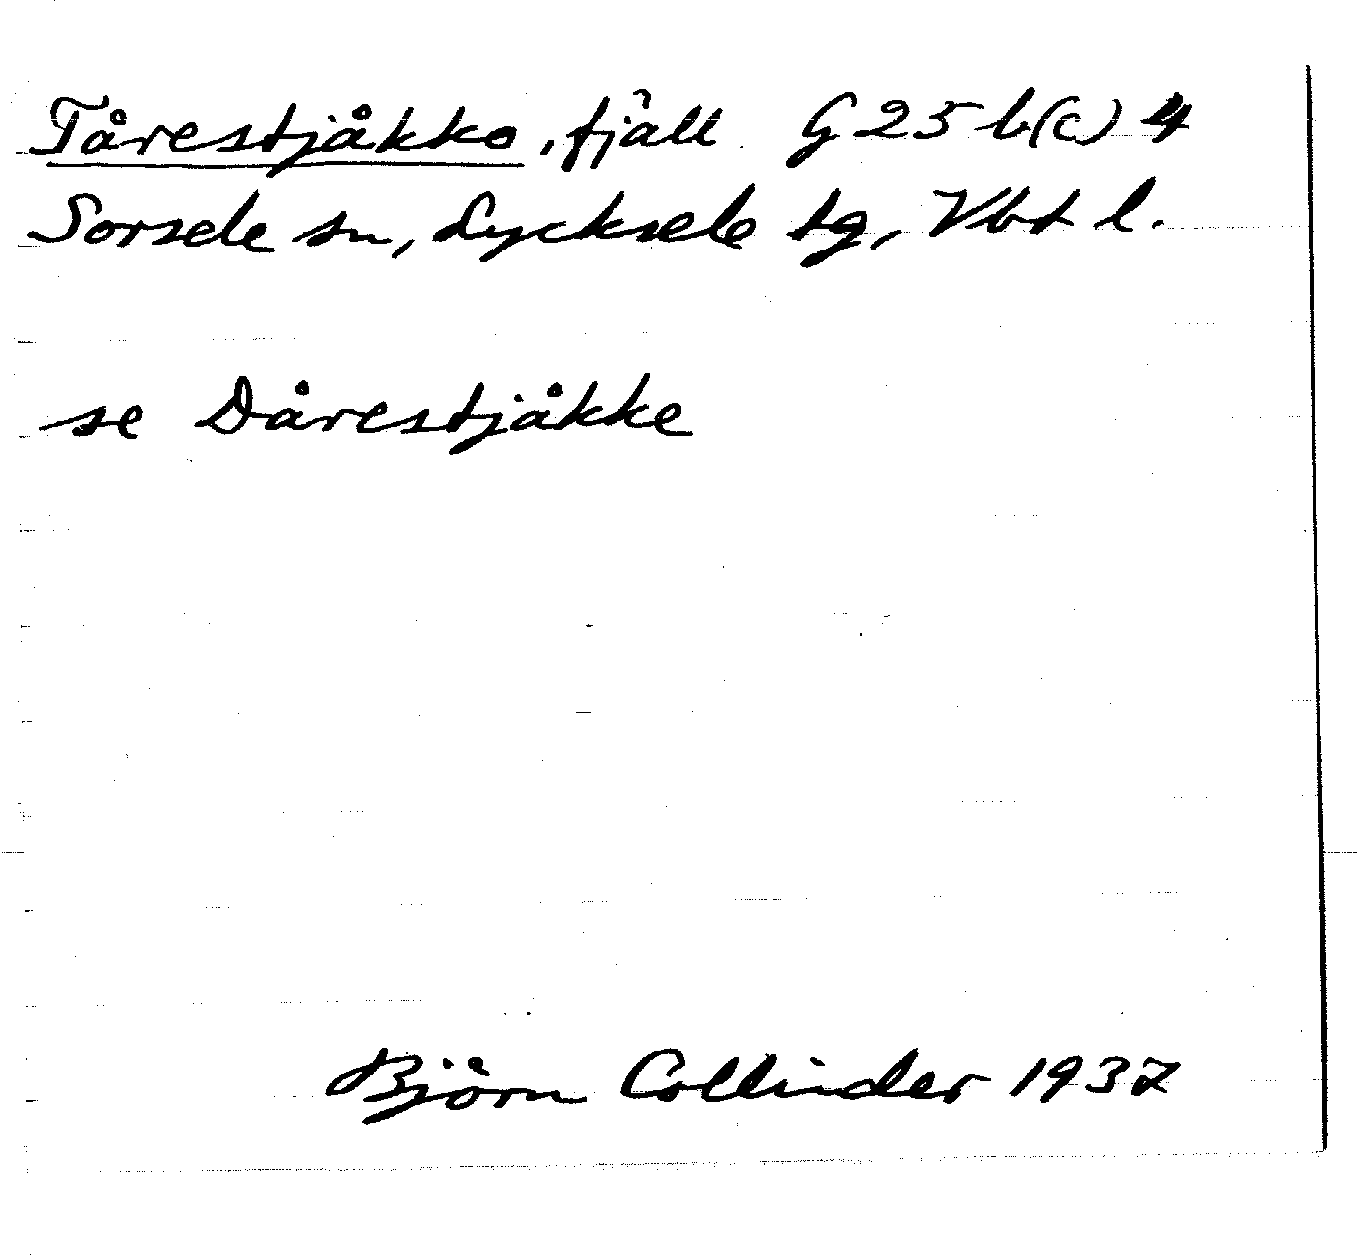 Tårestjåkko, fjäll G 25 b(c) 4
Sorsele sn, Lycksele tg, Vbt l.
se Dårestjåkke
Björn Collinder 1937